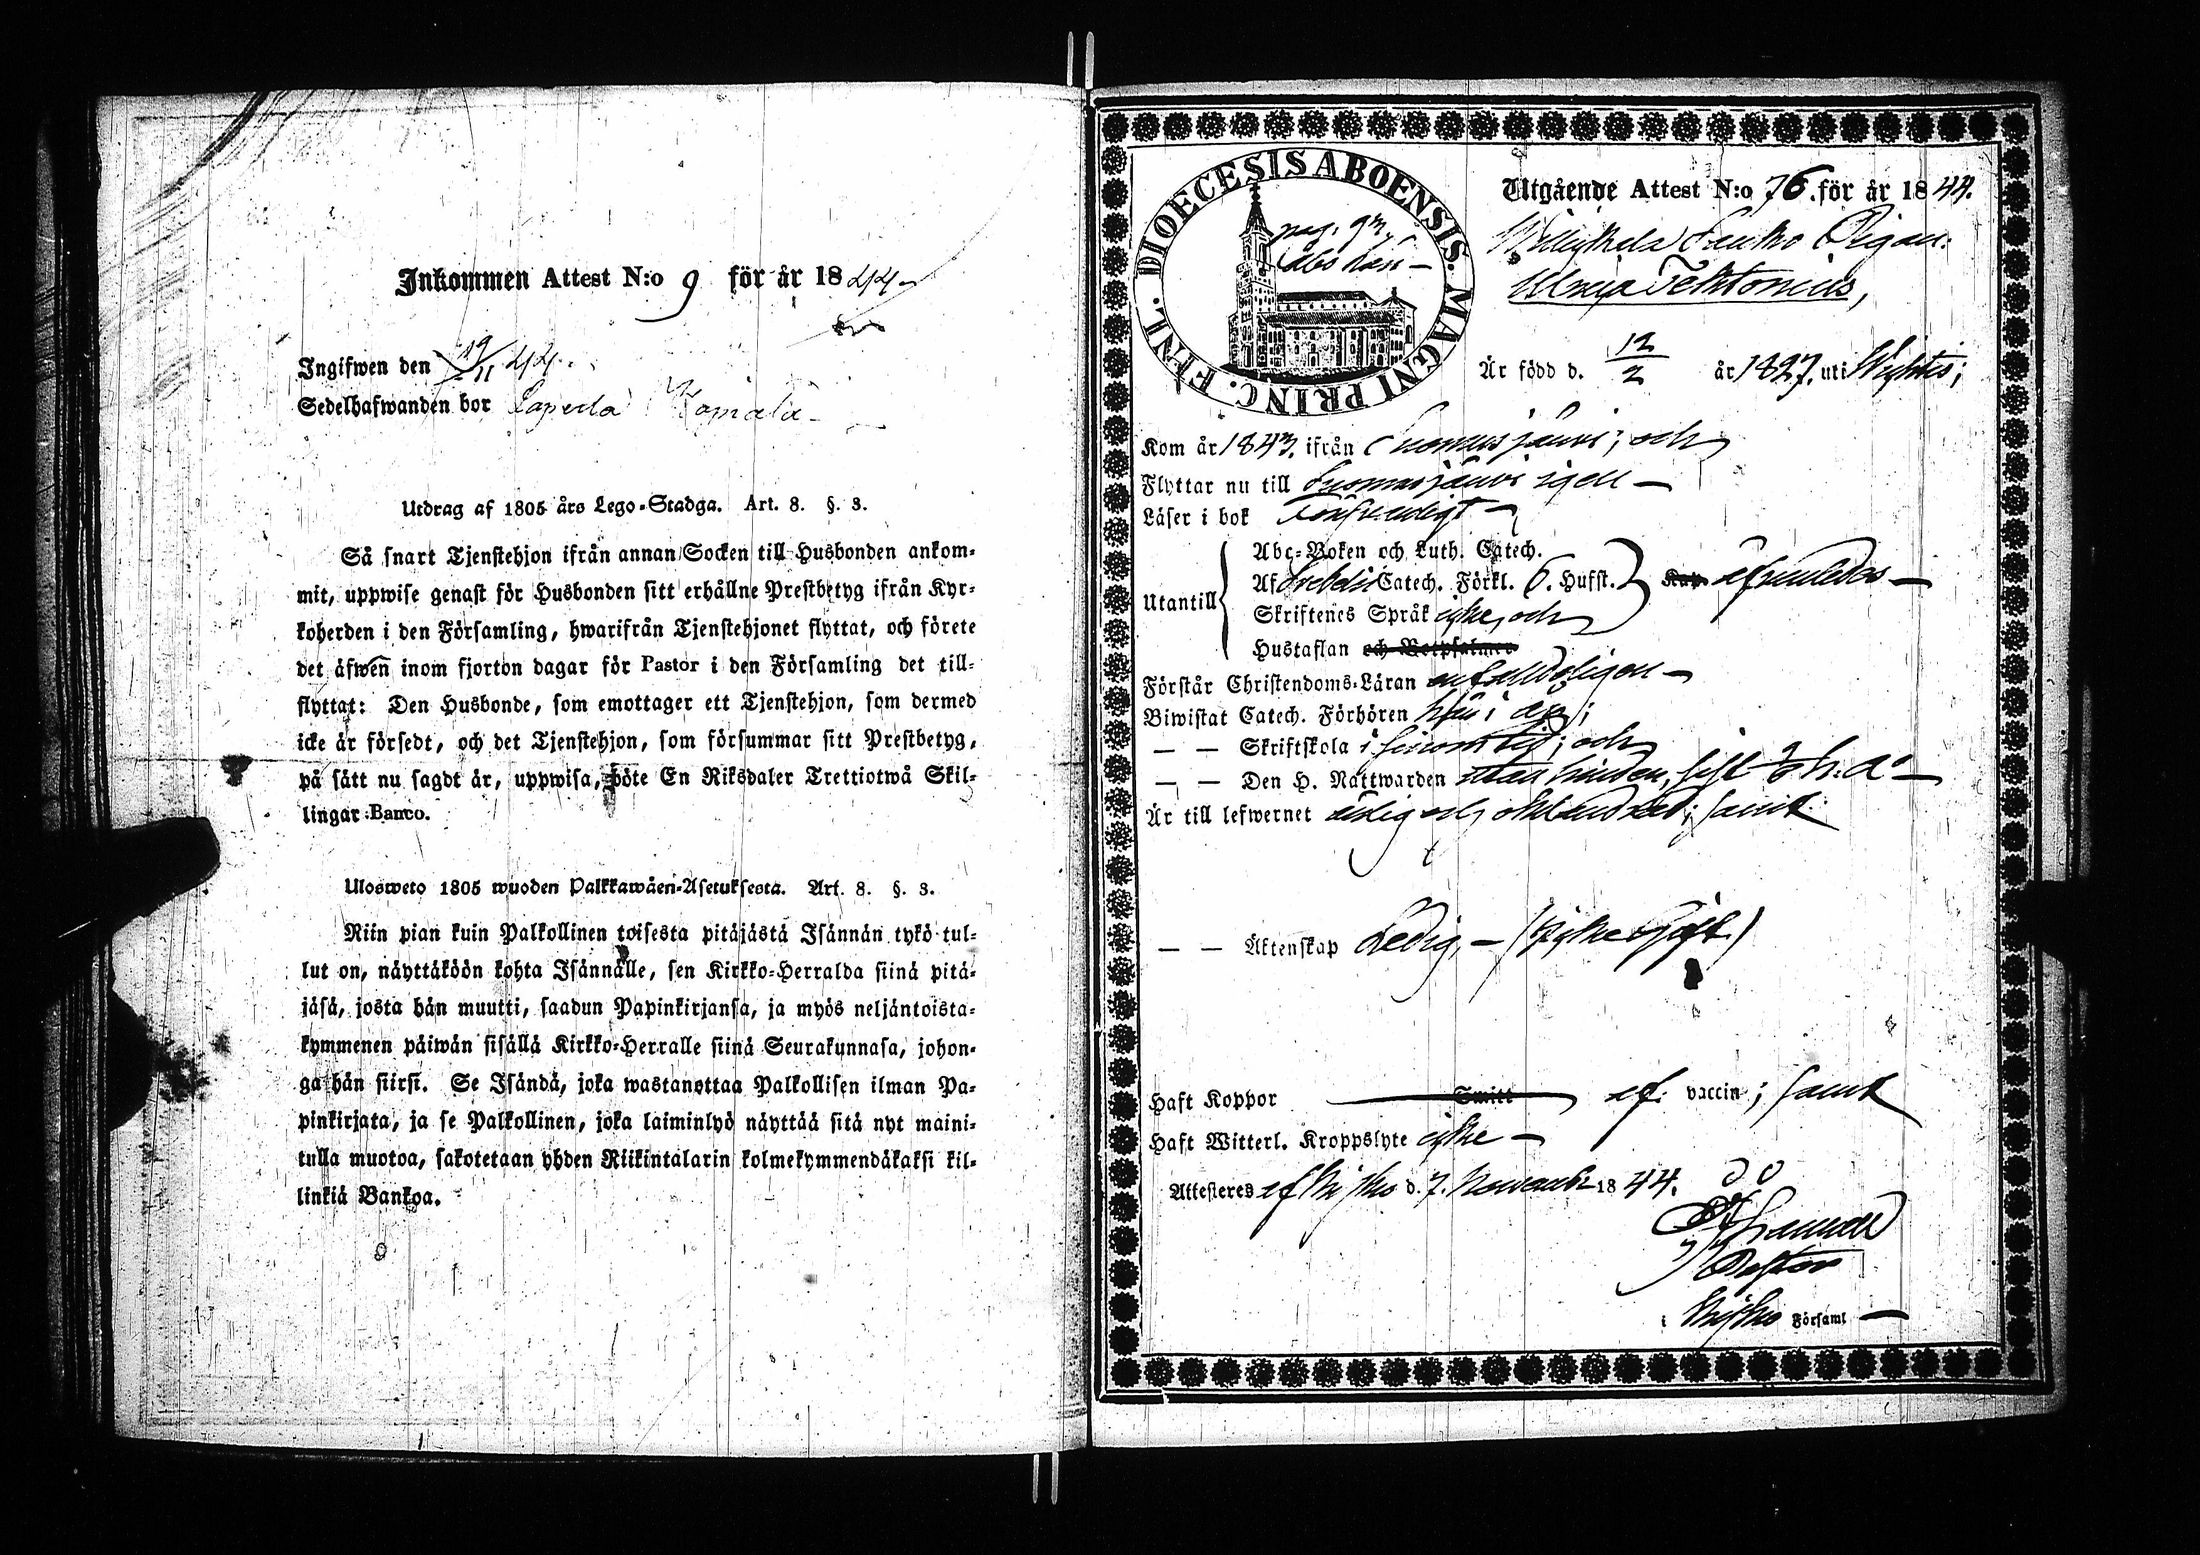 Inkommen Attest N:o 9 för år 1844
Ingifwen den 19/11 44.
Sedelhafwanden bor Laperla
Utdrag af 1805 års Lego-Stadga. Art. 8. §. 3.
Så snart Tjenstehjon ifrån annan Socken till Husbonden ankom-
mit, uppwise genast för Husbonden sitt erhållne Prestbetyg ifrån Kyr-
koherden i den Församling, hwarifrån Tjenstehjonet flyttat, och förete
det äfwen inom fjorton dagar för Pastor i den Församling det till-
flyttat: Den Husbonde, som emottager ett Tjenstehjon, som dermed
icke är försedt, och det Tjenstehjon, som försummar sitt Prestbetyg,
på sätt nu sagdt är, uppwisa, böte En Riksdaler Trettiotwå Skil-
lingar Banco.
Ulosweto 1805 wuoden Palkkawäen-Asetuksesta. Art. 8. §. 3.
Niin pian kuin Palkollinen toisesta pitäjästä Isännän tykö tul-
lut on, näyttäköön kohta Isännälle, sen Kirkko-Herralda siinä pitä-
jäsä, josta hän muutti, saadun Papinkirjansa, ja myös neljäntoista-
kymmenen päiwän sisällä Kirkko-Herralle siinä Seurakunnasa, johon-
ga hän siirsi. Se Isändä, joka wastanottaa Palkollisen ilman Pa-
pinkirjata, ja se Palkollinen, joka laiminlyö näyttää sitä nyt maini-
tulla muotoa, sakotetaan yhden Riikintalarin kolmekymmendäkaksi kil-
linkiä Bankoa.
DIOECESIS ABOENSIS. MAGNI PRINC. FINL.
pag. 97
Utgående Attest N:o 76. för år 1844.
Pigan
Tektonius,
Är född d. 12/2 år 1827. uti Wichtis;
Kom år 1843. ifrån Suomusjärwi; och
Flyttar nu till Suomusjärwi igen —
Läser i bok Försvarligt —
Utantill
Abc-Boken och Luth. Catech.
Af Svebelii Catech. Förkl. 6. Hufst.
Skriftenes Språk icke, och
Hustaflan och Botpsalmer
Förstår Christendoms-Läran enfaldeligen —
Biwistat Catech. Förhören i år;
— — Skriftskola i sinom tid; och
— — Den H. Nattwarden sist h: a: —
Är till lefwernet ärlig och oklandrad; samt
— — Äktenskap Ledig, — (icke Gift)
Haft Koppor Smitt ef. vaccin; samt
Haft Witterl. Kroppslyte icke —
Attesteres af Kisko d. 7. November 1844.
Pastor
i Kisko Församl —